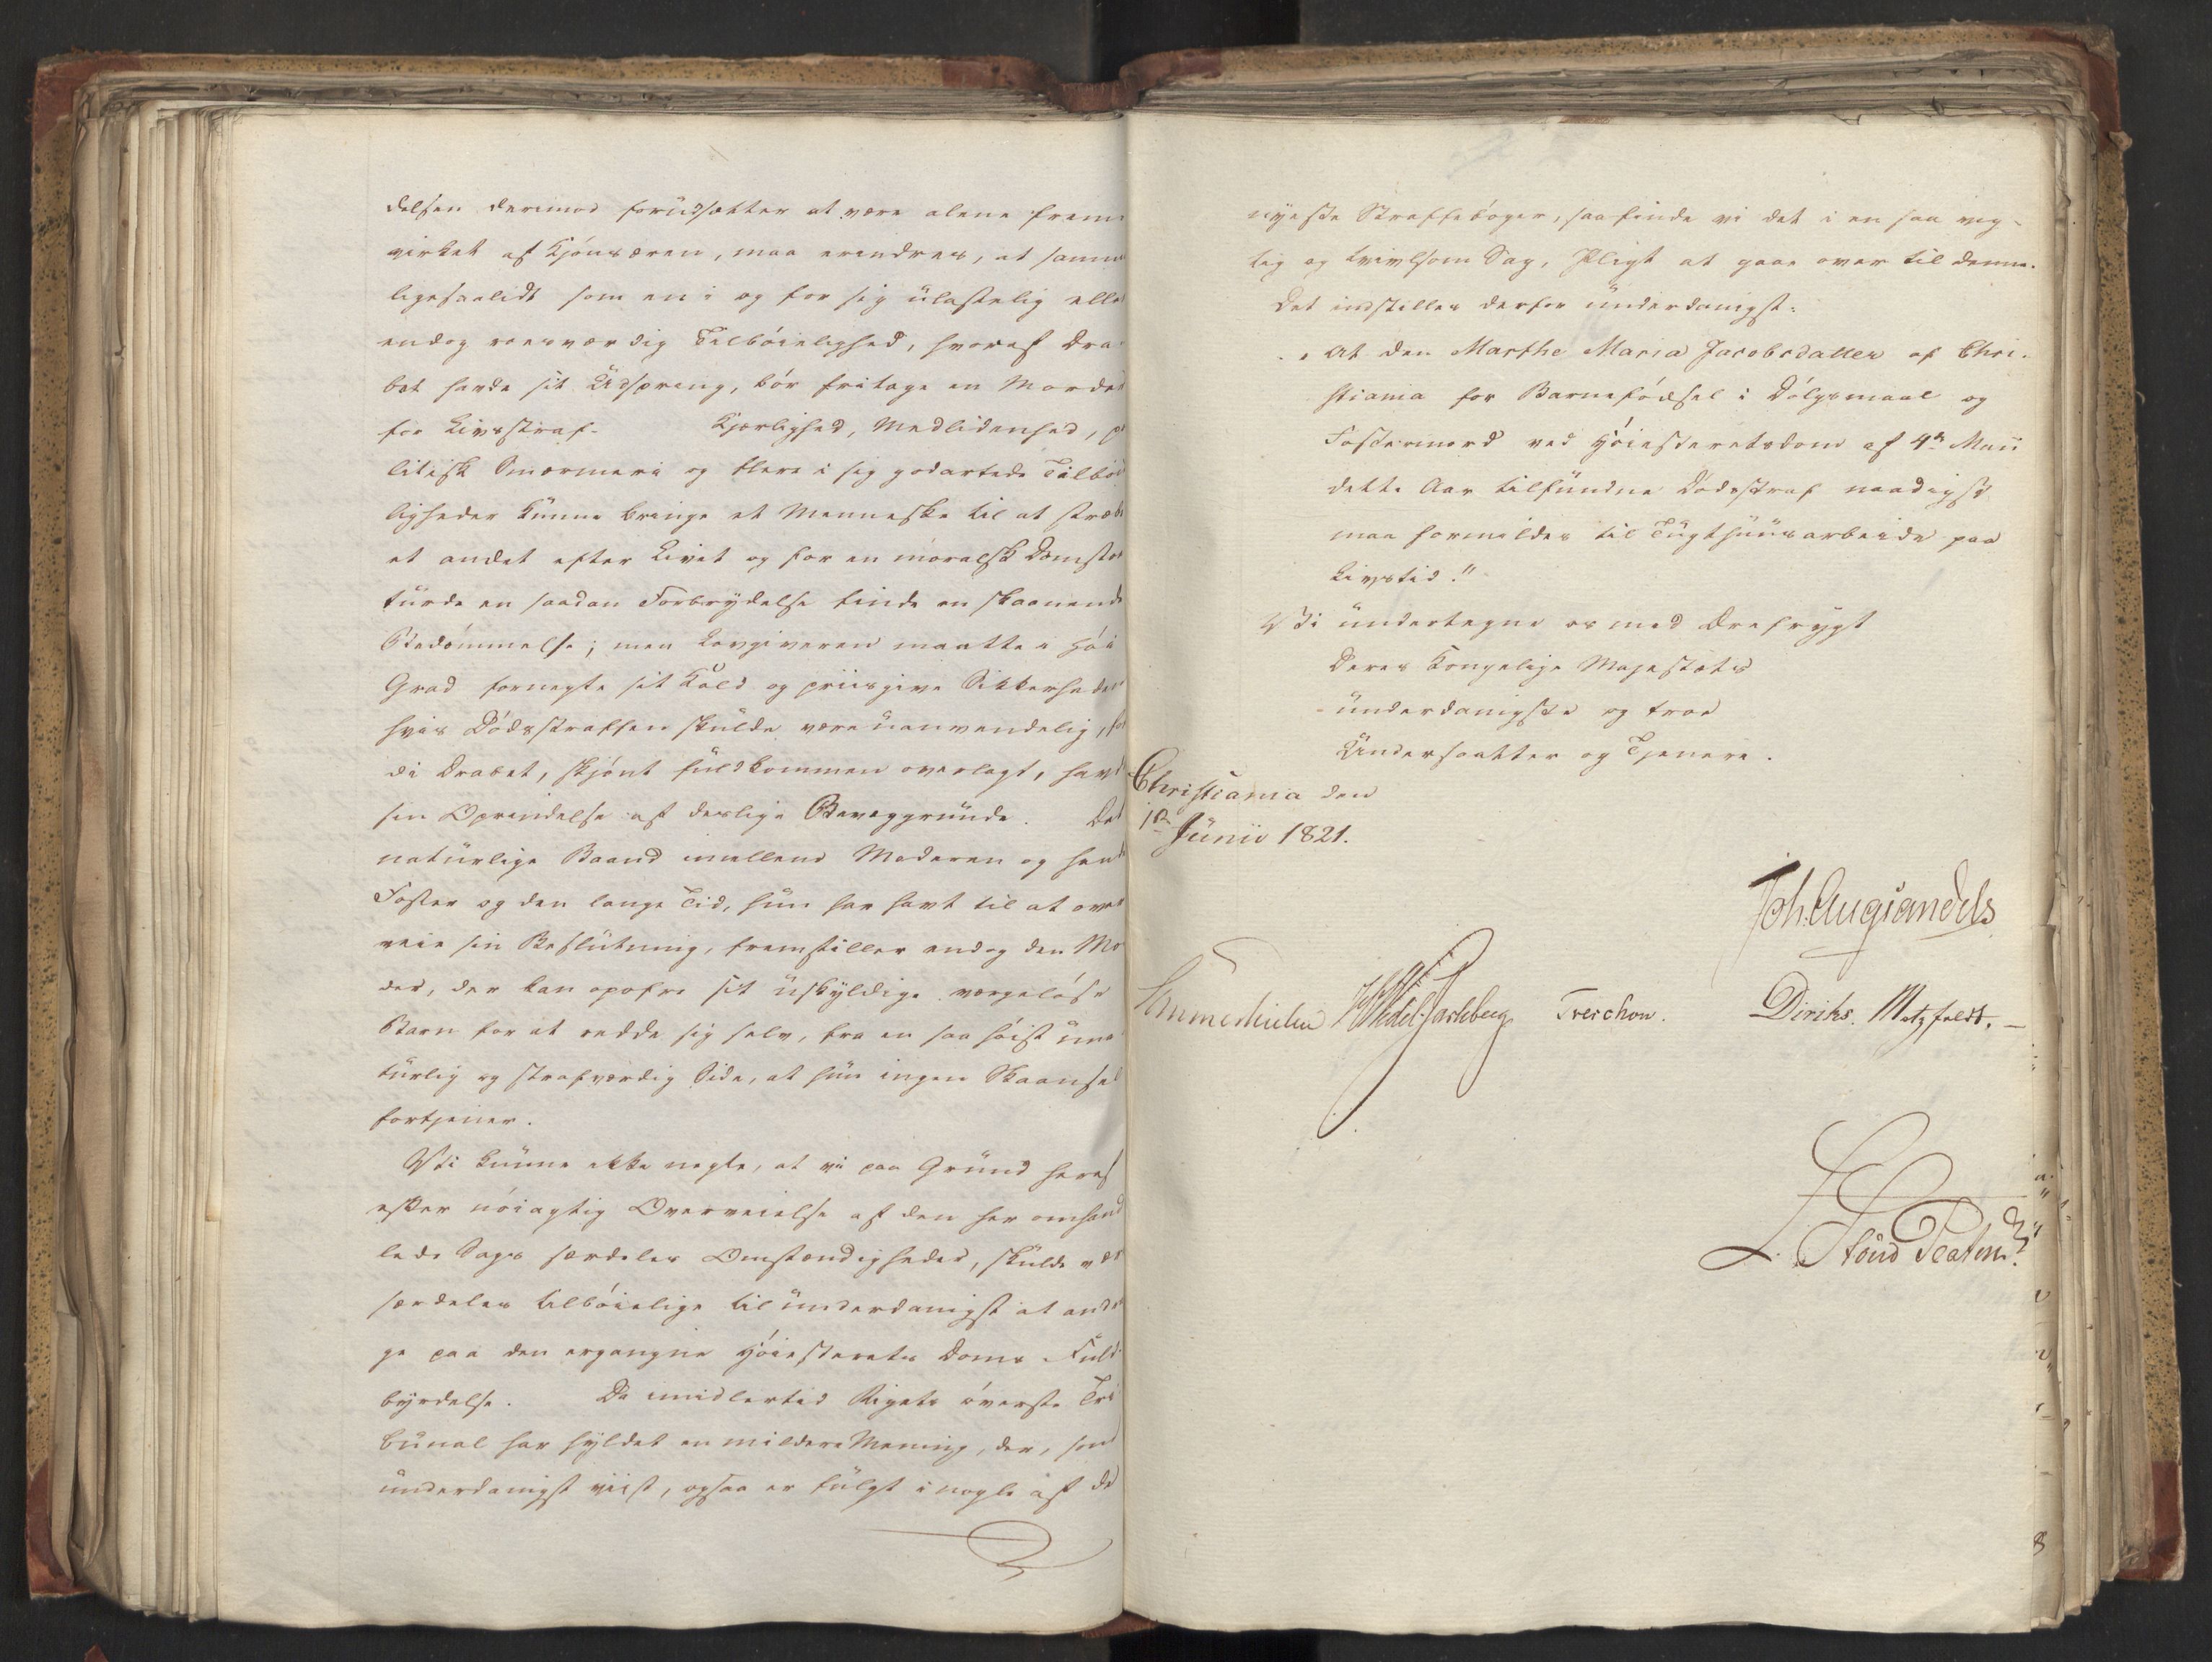 delsen derimod forudsætter at være alene frem
virket af Kjønsæren, maa erindres, at samme
ligesaalidt som en i og for sig ulastelig elle
endog roesværdig Tilbøielighed, hvoraf Dra
bet havde sit Udspring, bør fritage en Morder
for Livsstraf. Kjærlighed, Medlidenhed, po
litisk Sværmeri og flere i sig godartede Tilbøi
ligheder kunne bringe et Menneske til at stræbe
et andet efter Livet og for en moralsk Domstol
turde en saadan Forbrydelse finde en skaanende
Bedømmelse; men Lovgiveren maatte i høi
Grad fornegte sit Kald og priisgive Sikkerheden
hvis Dødsstraffen skulde være uanvendelig, for
di Drabet, skjønt fuldkommen overlagt, havde
sin Oprindelse af deslige Bevæggrunde. Det
naturlige Baand imellem Moderen og hendes
Foster og den lange Tid, hun har havt til at over
veie sin Beslutning, fremstiller endog den Mo
der, der kan opofre sit uskyldige værgeløse
Barn for at redde sig selv, fra en saa høist una
turlig og strafværdig Side, at hun ingen Skaansel
fortjener.
Vi kunne ikke negte, at vi paa Grund heraf
efter nøiagtig Overveielse af den her omhand
lede Sags særdeles Omstændigheder, skulde være
særdeles tilbøielige til underdanigst at andra
ge paa den ergangne Høiesterets Doms Fuld
byrdelse. Da imidlertid Rigets øverste Tri
bunal har hyldet en mildere Mening, der, som
underdanigst viist, ogsaa er fulgt i nogle af de
nyeste Straffebøger, saa finde vi det i en saa vig-
tig og tvivlsom Sag, Pligt at gaae over til denne.
Det indstilles derfor underdanigst:
"At den Marthe Maria Jacobsdatter af Chri-
stiania for Barnefødsel i Dølgsmaal og
Fostermord ved Høiesteretsdom af 4de Maii
dette Aar tilfundne Dødsstraf naadigst
maa formildes til Tugthuusarbeide paa
Livstid."
Vi undertegne os med Ærefrygt
Deres Kongelige Majestæts
underdanigste og troe
Undersaatter og Tjenere.
Christiania den
1ste Junii 1821.
Joh. Aug. Sandels
Sommerhielm HWedel Jarlsberg Treschow. Diriks. Motzfeldt. -
L. Stoud Platou